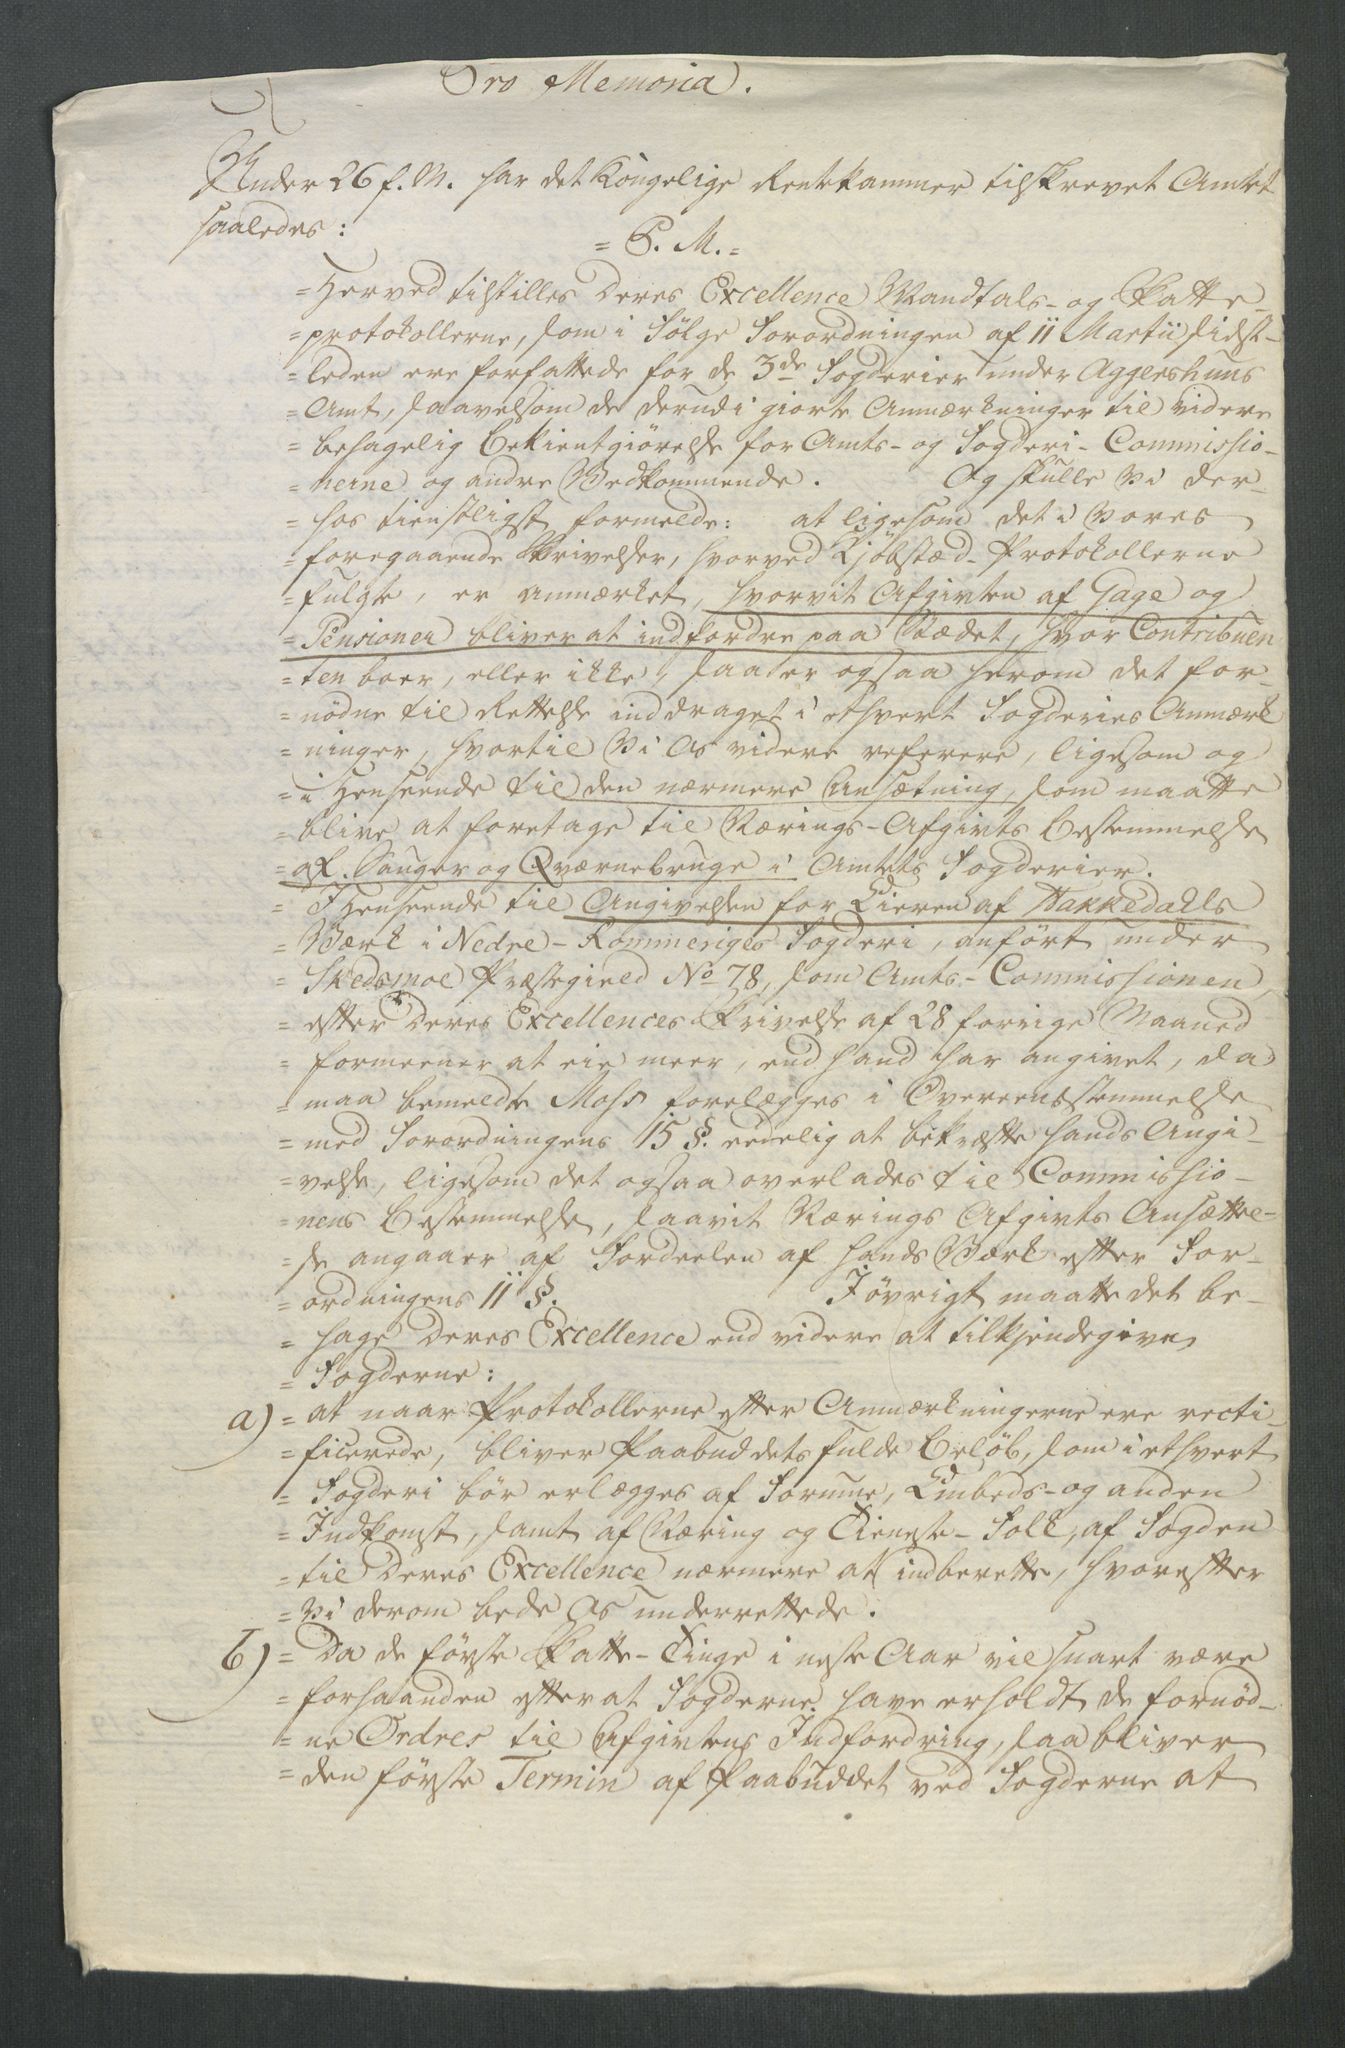 Pro Memoria.
Under 26 f. M. har det Kongelige Rentekammer tilskrevet Amtet
saaledes:
= P. M. =
= Herved tilstilles Deres Excellence Mandtals- og Skatte-
= protokollerne, som i Følge Forordningen af 11 Martii sidst-
= leden ere forfattede for de 3de Fogderier under Aggershuus
= Amt, saavelsom de derudi giorte Anmærkninger til videre
= behagelig Bekientgiørelse for Amts- og Fogderi- Commissio-
= nerne og andre Vedkommende. Og skulle Vi der-
= hos tienstligst formelde: at ligesom det i Vores
= foregaaende Skrivelser, hvorved Kjøbstæd- Protokollerne
= fulgte, er anmærket, hvorvit Afgivten af Gage og
= Pensioner bliver at indfordre paa Stædet, hvor Contribuen
= ten boer, eller ikke, saa er ogsaa herom det for-
= nødne til Rettelse inddraget i ethvert Fogderies Anmærk
= ninger, hvortil Vi os videre referere, ligesom og
= i Henseende til den nærmere Ansætning, som maatte
= blive at foretage til Nærings- Afgivts Bestemmelse
= af Sauger og Qværnebruge i Amtets Fogderier.
= I Henseende til Angivelsen for Eieren af Hakkedahls
= Værk i Nedre- Rommeriges Fogderi, anført under
= Skedsmoe Præstegield No 78, som Amts- Commissionen,
= efter Deres Excellences Skrivelse af 28 forrige Maaned
= formeener at eie meer, end hand har angivet, da
= maa bemeldte Moss forelægges i Overeensstemmelse
= med Forordningens 15 §. eedelig at bekræfte hands Angi-
= velse, ligesom det ogsaa overlades til Commissio-
= nens Bestemmelse, saavit Nærings Afgivts Ansættel-
= se angaaer af Fordeelen af hands Værk efter For-
= ordningens 11 §. I øvrigt maatte det be-
= hage Deres Excellence end videre at tilkjendegive
= Fogderne:
a) = at naar Protokollerne efter Anmærkningerne ere recti-
= ficerede, bliver Paabuddets fulde Beløb, som i ethvert
= Fogderi bør erlægges af Formue, Embeds- og anden
= Indkomst, samt af Næring og Tieneste- Folk, af Fogden
= til Deres Excellence nærmere at indberette, hvorefter
= Vi derom bede Os underrettede.
b) = Da de første Skatte- Tinge i neste Aar vil snart være
= forhaanden efter at Fogderne have erholdt de fornød-
= ne Ordres til Afgivtens Indfordring, saa bliver
= den første Termin af Paabuddet ved Fogderne at